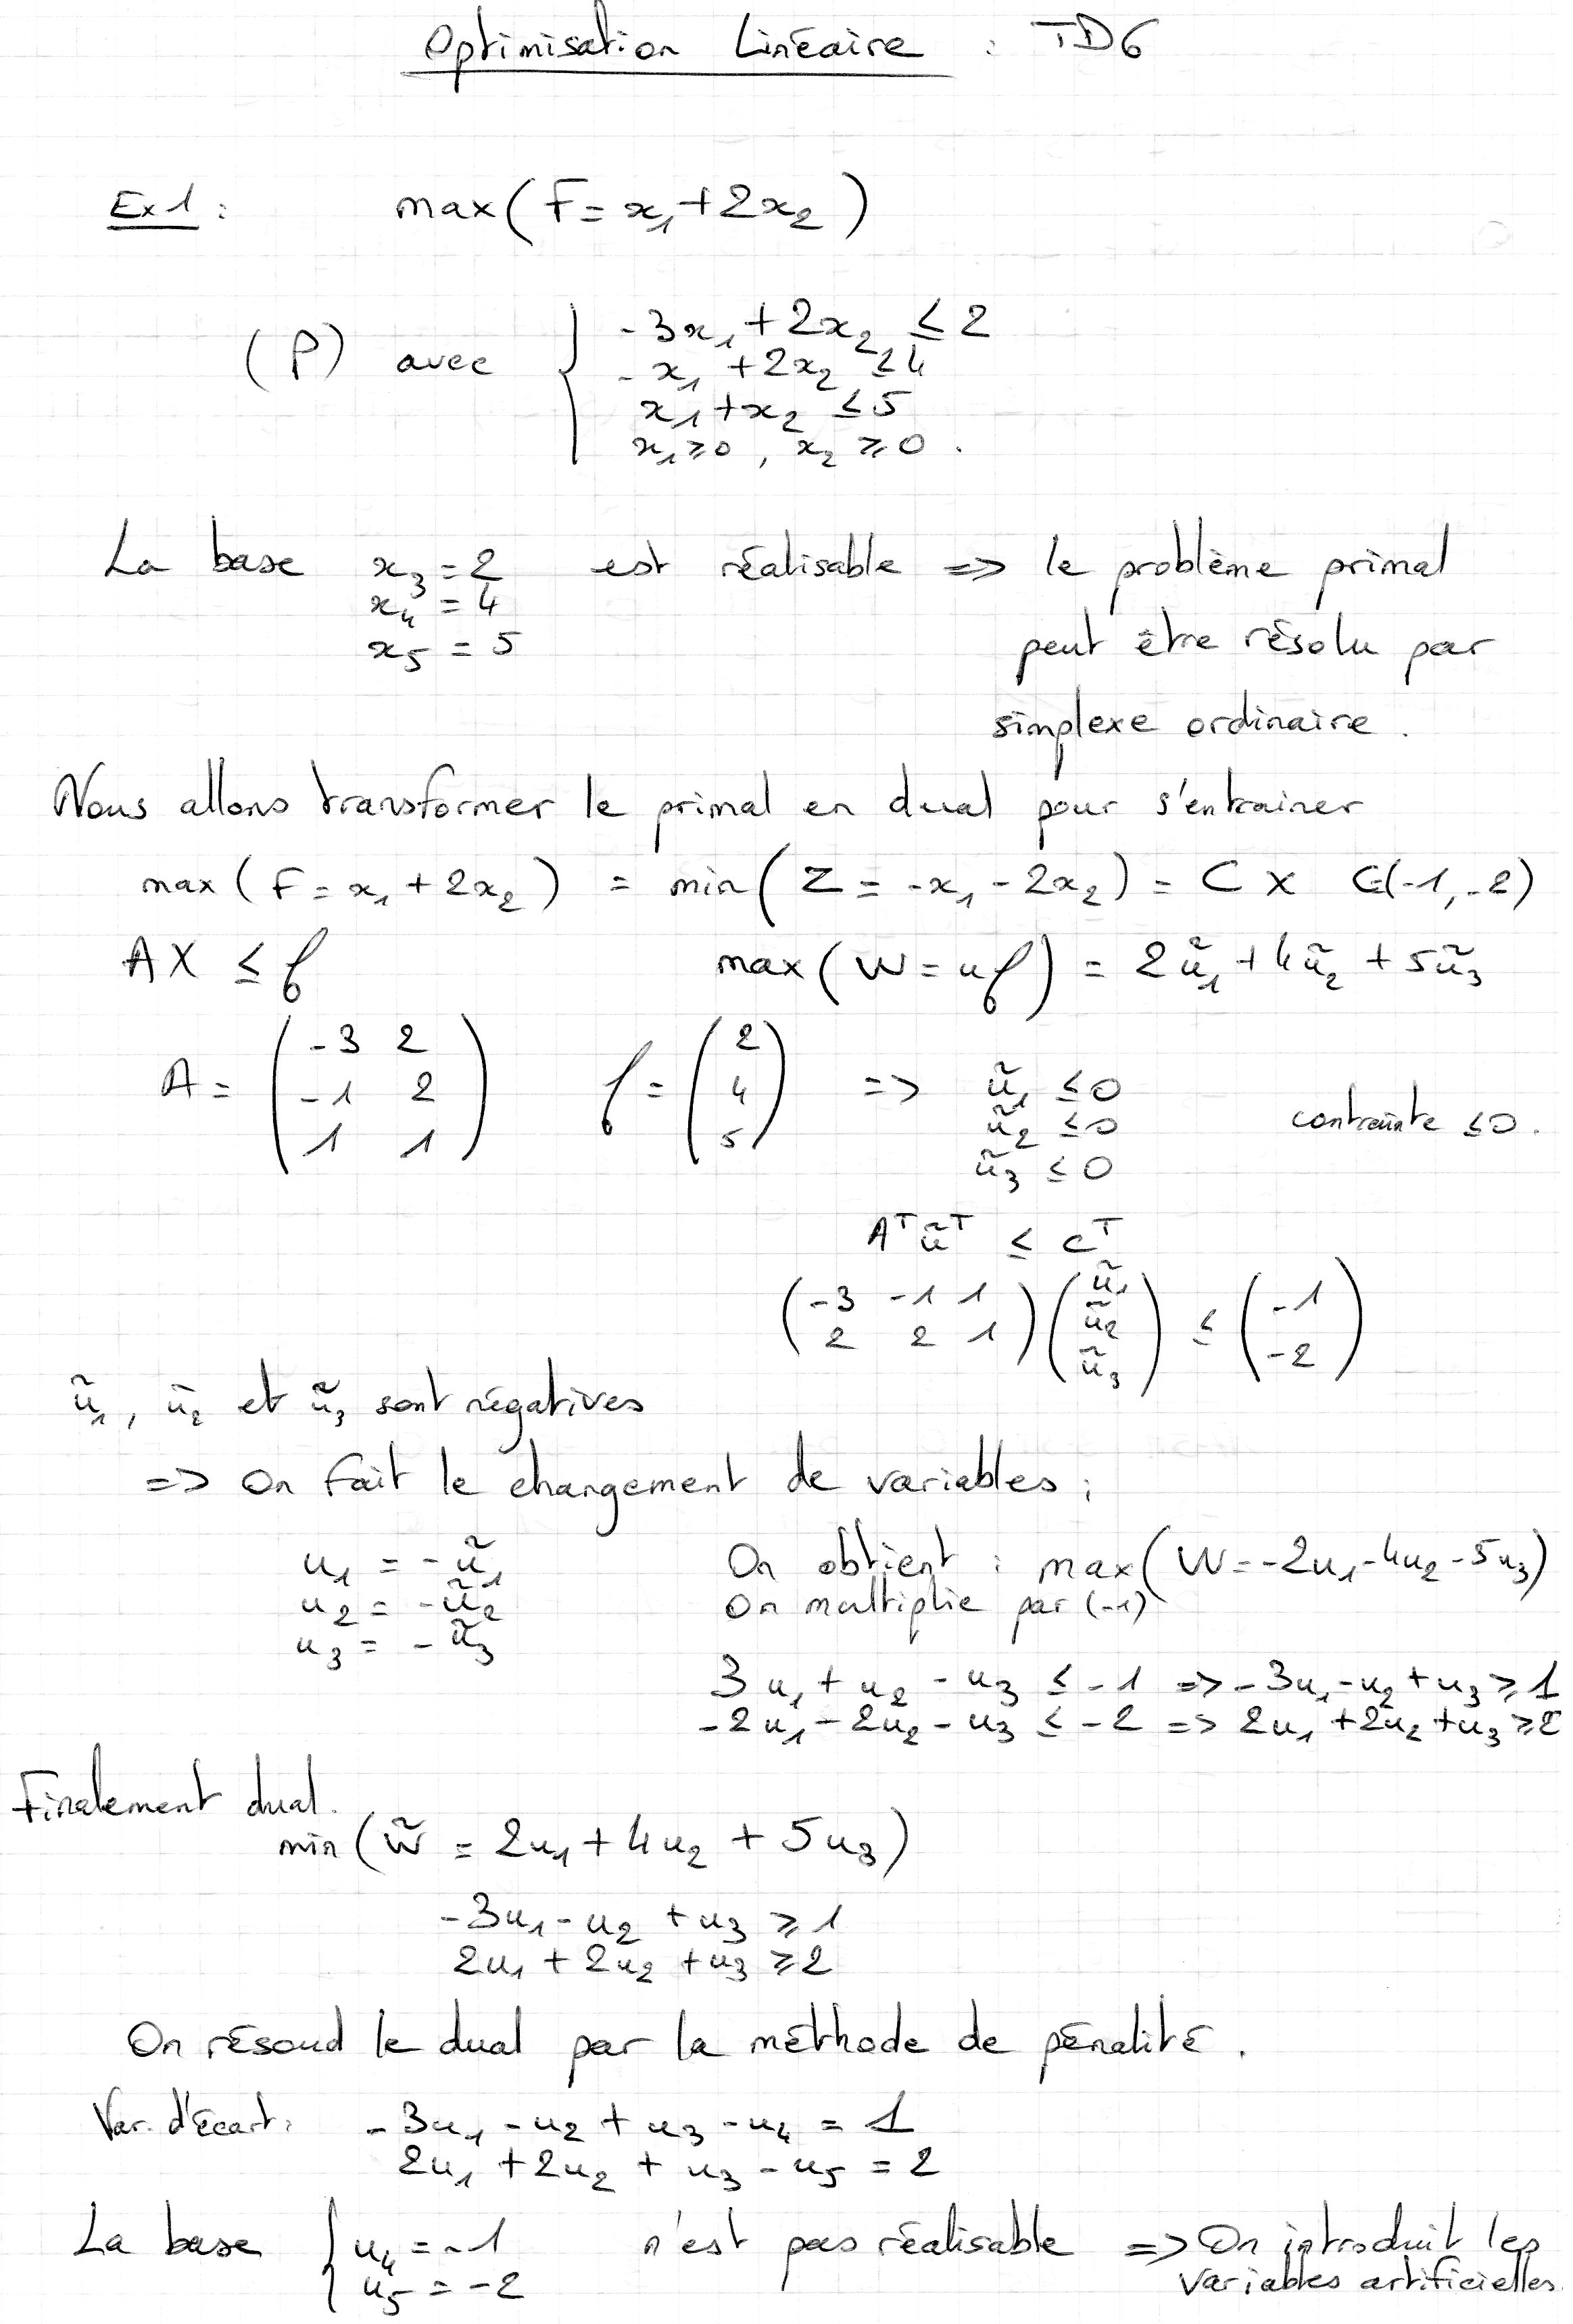 Optimisation Linéaire : TD6
Ex1 : max(F = x₁ + 2x₂)
-3x₁ + 2x₂ ≤ 2
(P) avec { -x₁ + 2x₂ ≤ 4
x₁ + x₂ ≤ 5
x₁ ≥ 0 , x₂ ≥ 0 .
La base x₃ = 2 est réalisable => le problème primal
x₄ = 4
x₅ = 5 peut être résolu par
simplexe ordinaire .
Nous allons transformer le primal en dual pour s'entrainer
max ( F = x₁ + 2x₂ ) = min ( Z = -x₁ - 2x₂ ) = C X C=(-1,-2)
AX ≤ b max ( W = ub ) = 2ũ₁ + 4ũ₂ + 5ũ₃
A = ( -3 2 ; -1 2 ; 1 1 ) b = ( 2 ; 4 ; 5 ) => ũ₁ ≤ 0
ũ₂ ≤ 0 contrainte ≤ 0 .
ũ₃ ≤ 0
Aᵀ ũᵀ ≤ cᵀ
( -3 -1 1 ; 2 2 1 ) ( ũ₁ ; ũ₂ ; ũ₃ ) ≤ ( -1 ; -2 )
ũ₁ , ũ₂ et ũ₃ sont négatives
=> On fait le changement de variables :
u₁ = -ũ₁ On obtient : max ( W = -2u₁ - 4u₂ - 5u₃ )
u₂ = -ũ₂ On multiplie par (-1)
u₃ = -ũ₃
3u₁ + u₂ - u₃ ≤ -1 => -3u₁ - u₂ + u₃ ≥ 1
-2u₁ - 2u₂ - u₃ ≤ -2 => 2u₁ + 2u₂ + u₃ ≥ 2
Finalement dual.
min ( W̃ = 2u₁ + 4u₂ + 5u₃ )
-3u₁ - u₂ + u₃ ≥ 1
2u₁ + 2u₂ + u₃ ≥ 2
On résoud le dual par la méthode de pénalité .
Var. d'écart : -3u₁ - u₂ + u₃ - u₄ = 1
2u₁ + 2u₂ + u₃ - u₅ = 2
La base { u₄ = -1 n'est pas réalisable => On introduit les
u₅ = -2 variables artificielles.